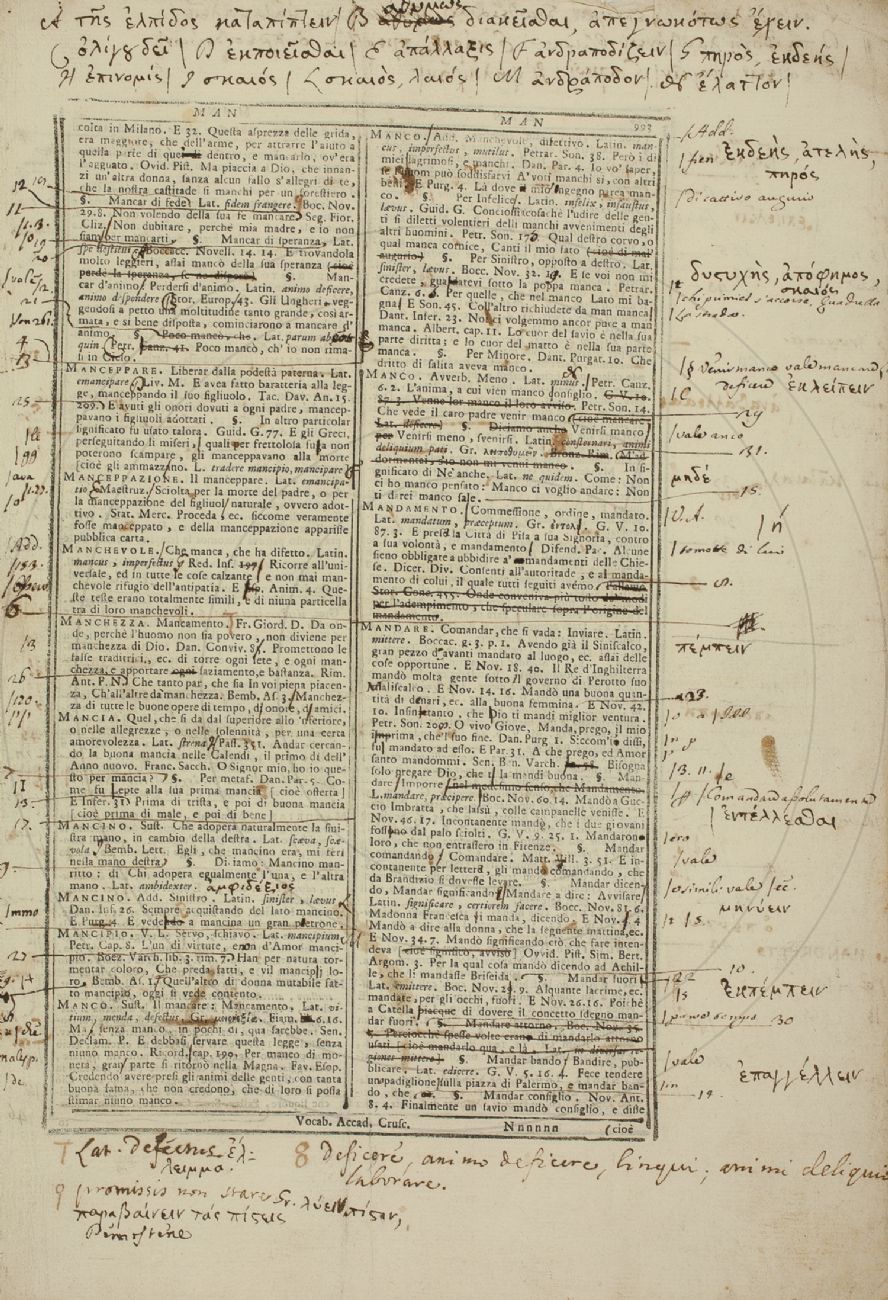 A τῆς ἐλπίδος καταπίπτειν/ B ἀθύμως διακεῖσθαι, ἀπεγνωκότως ἔχειν.
C ὀλίγου δεῖ/ D ἐκποιεῖσθαι/ E ἀπάλλαξις/ F ἀνδραποδίζειν/ G πηρός, ἐκδεής/
H ἐπινομίς/ I σκαιός/ L σκαιός, λαιός/ M ἀνδράποδον/ ἔλαττον/
MAN
MAN 993
colta in Milano. E 32. Questa asprezza delle grida,
era maggiore, che dell'arme, per attrarre l'aiuto a
quella parte di quei di dentro, e mancarlo, ov'era
l'agguato. Ovid. Pist. Ma piaccia a Dio, che innan-
zi un'altra donna, sanza alcun fallo s'allegri di te,
che la nostra castitade si manchi per un forestiero.
§. Mancar di fede, Lat. fidem frangere. Boc. Nov.
29. 8. Non volendo della sua fe mancare. Seg. Fior.
Cliz. Non dubitare, perchè mia madre, e io non
siam per mancarti. §. Mancar di speranza, Lat.
spe destitui. Boccacc. Novell. 14. 14. E trovandola
molto leggieri, assai mancò della sua speranza (cioè
perdè la speranza, se ne dispose) §. Man-
car d'animo, Perdersi d'animo. Latin. animo deficere,
animo despondere. Stor. Europ. 43. Gli Ungheri, veg-
gendosi a petto una moltitudine tanto grande, così ar-
mata, e sì bene disposta, cominciarono a mancare d'
animo. §. Poco mancò, che. Lat. parum abest
quin. Petr. Canz. 41. Poco mancò, ch' io non rima-
si in Cielo.
MANCEPPARE. Liberar dalla podestà paterna. Lat.
emancipare. Liv. M. E avea fatto baratteria alla leg-
ge, manceppando il suo figliuolo. Tac. Dav. An. 15.
209. E avuti gli onori dovuti a ogni padre, mancep-
pavano i figliuoli adottati. §. In altro particolar
significato fu usato talora. Guid. G. 77. E gli Greci,
perseguitando li miseri, quali per frettolosa fuga non
poterono scampare, gli manceppavano alla morte
[cioè gli ammazzano. L. tradere mancipio, mancipare]
MANCEPPAZIONE. Il manceppare. Lat. emancipa-
tio. Maestruz. Sciolta per la morte del padre, o per
la manceppazione del figliuol naturale, ovvero adot-
tivo. Stat. Merc. Proceda, ec. siccome veramente
fosse manceppato, e della manceppazione apparisse
pubblica carta.
MANCHEVOLE. Che manca, che ha difetto. Latin.
mancus, imperfectus. Red. Ins. 197. Ricorre all'uni-
versale, ed in tutte le cose calzante, e non mai man-
chevole rifugio dell'antipatia. E Esp. Anim. 4. Que-
ste teste erano totalmente simili, e di niuna particella
tra di loro manchevoli.
MANCHEZZA. Mancamento. Fr. Giord. D. Da on-
de, perchè l'huomo non sia povero, non diviene per
manchezza di Dio. Dan. Conviv. 8. Promettono le
false traditrici, ec. di torre ogni sete, e ogni man-
chezza, e apportare ogni saziamento, e bastanza. Rim.
Ant. P. N. Che tanto par, che sia In voi piena piacen-
za, Ch'all'altre dà manchezza. Bemb. As. 3. Manchez-
za di tutte le buone opere di tempo, di onore, d'amici.
MANCIA. Quel, che si dà dal superiore all'inferiore,
o nelle allegrezze, o nelle solennità, per una certa
amorevolezza. Lat. strena. Pass. 351. Andar cercan-
do la buona mancia nelle Calendi, il primo dì dell'
Anno nuovo. Franc. Sacch. O Signor mio, ho io que-
sto per mancia? §. Per metaf. Dan. Par. 5. Co-
me fu Lepte alla sua prima mancia [cioè offerta]
E Infer. 31. Prima di trista, e poi di buona mancia
[cioè prima di male, e poi di bene]
MANCINO. Sust. Che adopera naturalmente la sini-
stra mano, in cambio della destra. Lat. scæva, scæ-
vola. Bemb. Lett. Egli, che mancino era, mi ferì
nella mano destra. §. Diciamo: Mancino man-
ritto: di Chi adopera egualmente l'una, e l'altra
mano. Lat. ambidexter. ἀμφιδέξιος
MANCINO. Add. Sinistro. Latin. sinister, lævus.
Dan. Inf. 26. Sempre acquistando del lato mancino.
E Purg. 4. E vedendo a mancina un gran petrone.
MANCIPIO. V. L. Servo, schiavo. Lat. mancipium.
Petr. Cap. 8. L'un di virtute, e non d'Amor manci-
pio. Boez. Varch. lib. 3. rim. 7. Han per natura tor-
mentar coloro, Che preda fatti, e vil mancipj lo-
ro. Bemb. As. 1. Quell'altro di donna mutabile fat-
to mancipio, oggi si vede contento.
MANCO. Sust. Il mancare: Mancamento. Lat. vi-
tium, menda, defectus.
Ma, senza manco, in pochi dì, qua sarebbe. Sen.
Declam. P. E debbasi servare questa legge, senza
niuno manco. Ricord. cap. 190. Per manco di mo-
neta, gran parte si ritornò nella Magna. Fav. Esop.
Credendo avere presi gli animi delle genti, con tanta
buona fama, che non credono, che di loro si possa
stimar niuno manco.
MANCO. Add. Manchevole, difettivo. Latin. man-
cus, imperfectus, mutilus. Petrar. Son. 38. Però i dì
miei lagrimosi, e manchi. Dan. Par. 4. Io vo' saper,
se l'uom può soddisfarvi A' voti manchi sì, con altri
beni. E Purg. 4. Là dove mio ingegno parea man-
co. §. Per Infelice. Latin. infelix, infaustus,
lævus. Guid. G. Conciossiecosachè l'udire delle gen-
ti si diletti volentieri delli manchi avvenimenti degli
altri huomini. Petr. Son. 172. Qual destro corvo, o
qual manca cornice, Canti il mio fato (cioè di mal'
augurio) §. Per Sinistro, opposto a destro. Lat.
sinister, lævus. Bocc. Nov. 32. 19. E se voi non mi
credete, guardatevi sotto la poppa manca. Petrar.
Canz. 6. 6. Per quelle, che nel manco Lato mi ba-
gna, E Son. 25. Coll'altro richiudete da man manca,
Dant. Infer. 23. Noi ci volgemmo ancor pure a man
manca. Albert. cap. 11. Lo cuor del savio è nella sua
parte diritta; e lo cuor del matto è nella sua parte
manca. §. Per Minore. Dant. Purgat. 10. Che
dritto di salita aveva manco.
MANCO. Avverb. Meno. Lat. minus. Petr. Canz.
6. 2. L'anima, a cui vien manco consiglio. G. V. 10.
87. 3. Venne lor manco il loro avviso. Petr. Son. 14.
Che vede il caro padre venir manco (cioè mancare,
Lat. deficere) §. Diciamo anche Venirsi manco,
per Venirsi meno, svenirsi. Latin. consternari, animi
deliquium pati.
§. In si-
gnificato di Nè anche. Lat. ne quidem. Come: Non
ci ho manco pensato: Manco ci voglio andare: Non
ti direi manco sale.
MANDAMENTO. Commessione, ordine, mandato.
Lat. mandatum, præceptum. Gr. ἐντολή. G. V. 10.
87. 3. E presa la Città di Pisa a sua Signoria, contro
a sua volontà, e mandamento. Difend. Pac. Alcune
sieno obbligate a ubbidire a' comandamenti delle Chie-
se. Dicer. Div. Consenti all'autoritade, e al manda-
mento di colui, il quale tutti seguiti avemo.
Stor. Conc. 455. Onde conveniva più tosto da' modi
per l'adempimento, che speculare sopra l'origine del
mandamento.
MANDARE. Comandar, che si vada: Inviare. Latin.
mittere. Boccac. g. 3. p. 1. Avendo già il Siniscalco,
gran pezzo davanti mandato al luogo, ec. assai delle
cose opportune. E Nov. 18. 40. Il Re d'Inghilterra
mandò molta gente sotto il governo di Perotto suo
Maliscalco. E Nov. 14. 16. Mandò una buona quan-
tità di denari, ec. alla buona femmina. E Nov. 42.
10. Infino a tanto, che Dio ti mandi miglior ventura.
Petr. Son. 200. O vivo Giove, Manda, prego, il mio
in prima, che 'l suo fine. Dan. Purg. 1. Siccom' io dissi,
fui mandato ad esso. E Par. 31. A che prego, ed Amor
santo mandommi. Sen. Ben. Varch. Bisogna
solo pregare Dio, che ti la mandi buona. §. Man-
dare, Imporre.
L. mandare, præcipere. Boc. Nov. 60. 14. Mandò a Guc-
cio Imbratta, che lassù, colle campanelle venisse. E
Nov. 46. 17. Incontanente mandò, che i due giovani
fossono dal palo sciolti. G. V. 9. 25. 1. Mandarono
loro, che non entrassero in Firenze. §. Mandar
comandando, Comandare. Matt. Vill. 3. 51. E in-
contanente per lettera, gli mandò comandando, che
da Brandizio si dovesse levare. §. Mandar dicen-
do, Mandar significando, Mandare a dire: Avvisare.
Latin. significare, certiorem facere. Bocc. Nov. 81. 6.
Madonna Francesca ti manda, dicendo. E Nov. 4
Mandò a dire alla donna, che la seguente mattina, ec.
E Nov. 34. 7. Mandò significando ciò che fare inten-
deva [cioè significò, avvisò] Ovvid. Pist. Sim. Bert.
Argom. 3. Per la qual cosa mandò dicendo ad Achil-
le, che li mandasse Briseida. §. Mandar fuori,
Lat. emittere. Boc. Nov. 29. 9. Alquante lacrime, ec.
mandate, per gli occhi, fuori. E Nov. 26. 16. Poichè
a Catella piacque di dovere il concetto sdegno man-
dar fuori. §. Mandare attorno, Boc. Nov. 35.
5. Perciocchè spesse volte erano di mandarlo attorno
usati [cioè mandarlo qua, e là, Lat. in diversas re-
giones mittere) §. Mandar bando, Bandire, pub-
blicare. Lat. edicere. G. V. 5. 16. 4. Fece tendere
un padiglione sulla piazza di Palermo, e mandar ban-
do, che §. Mandar consiglio. Nov. Ant.
8. 4. Finalmente un savio mandò consiglio, e disse
Vocab. Accad. Crusc. Nnnnnn (cioè
Add.
ἐκδεής, ἀτελής,
πηρός
Di cattivo augurio
δυστυχής, ἀπόφημος,
σκαιός
§ Venir manco vale mancare
deficere ἐκλείπειν
29
vale anco
31.
μηδέ
15.
ἤ
πέμπειν
Comandar assolutamente
ἐντέλλεσθαι
vale
μηνύειν
10.
22
ἐκπέμπειν
30
vale
ἐπαγγέλλειν
19.
7 Lat. defectus. ἔλ-
λειμμα.
8 Deficere, animo deficere, linqui; animi deliquio
laborare.
9 promissis non stare Gr. λύειν πίστιν,
παραβαίνειν τὰς πίστεις
Demostene